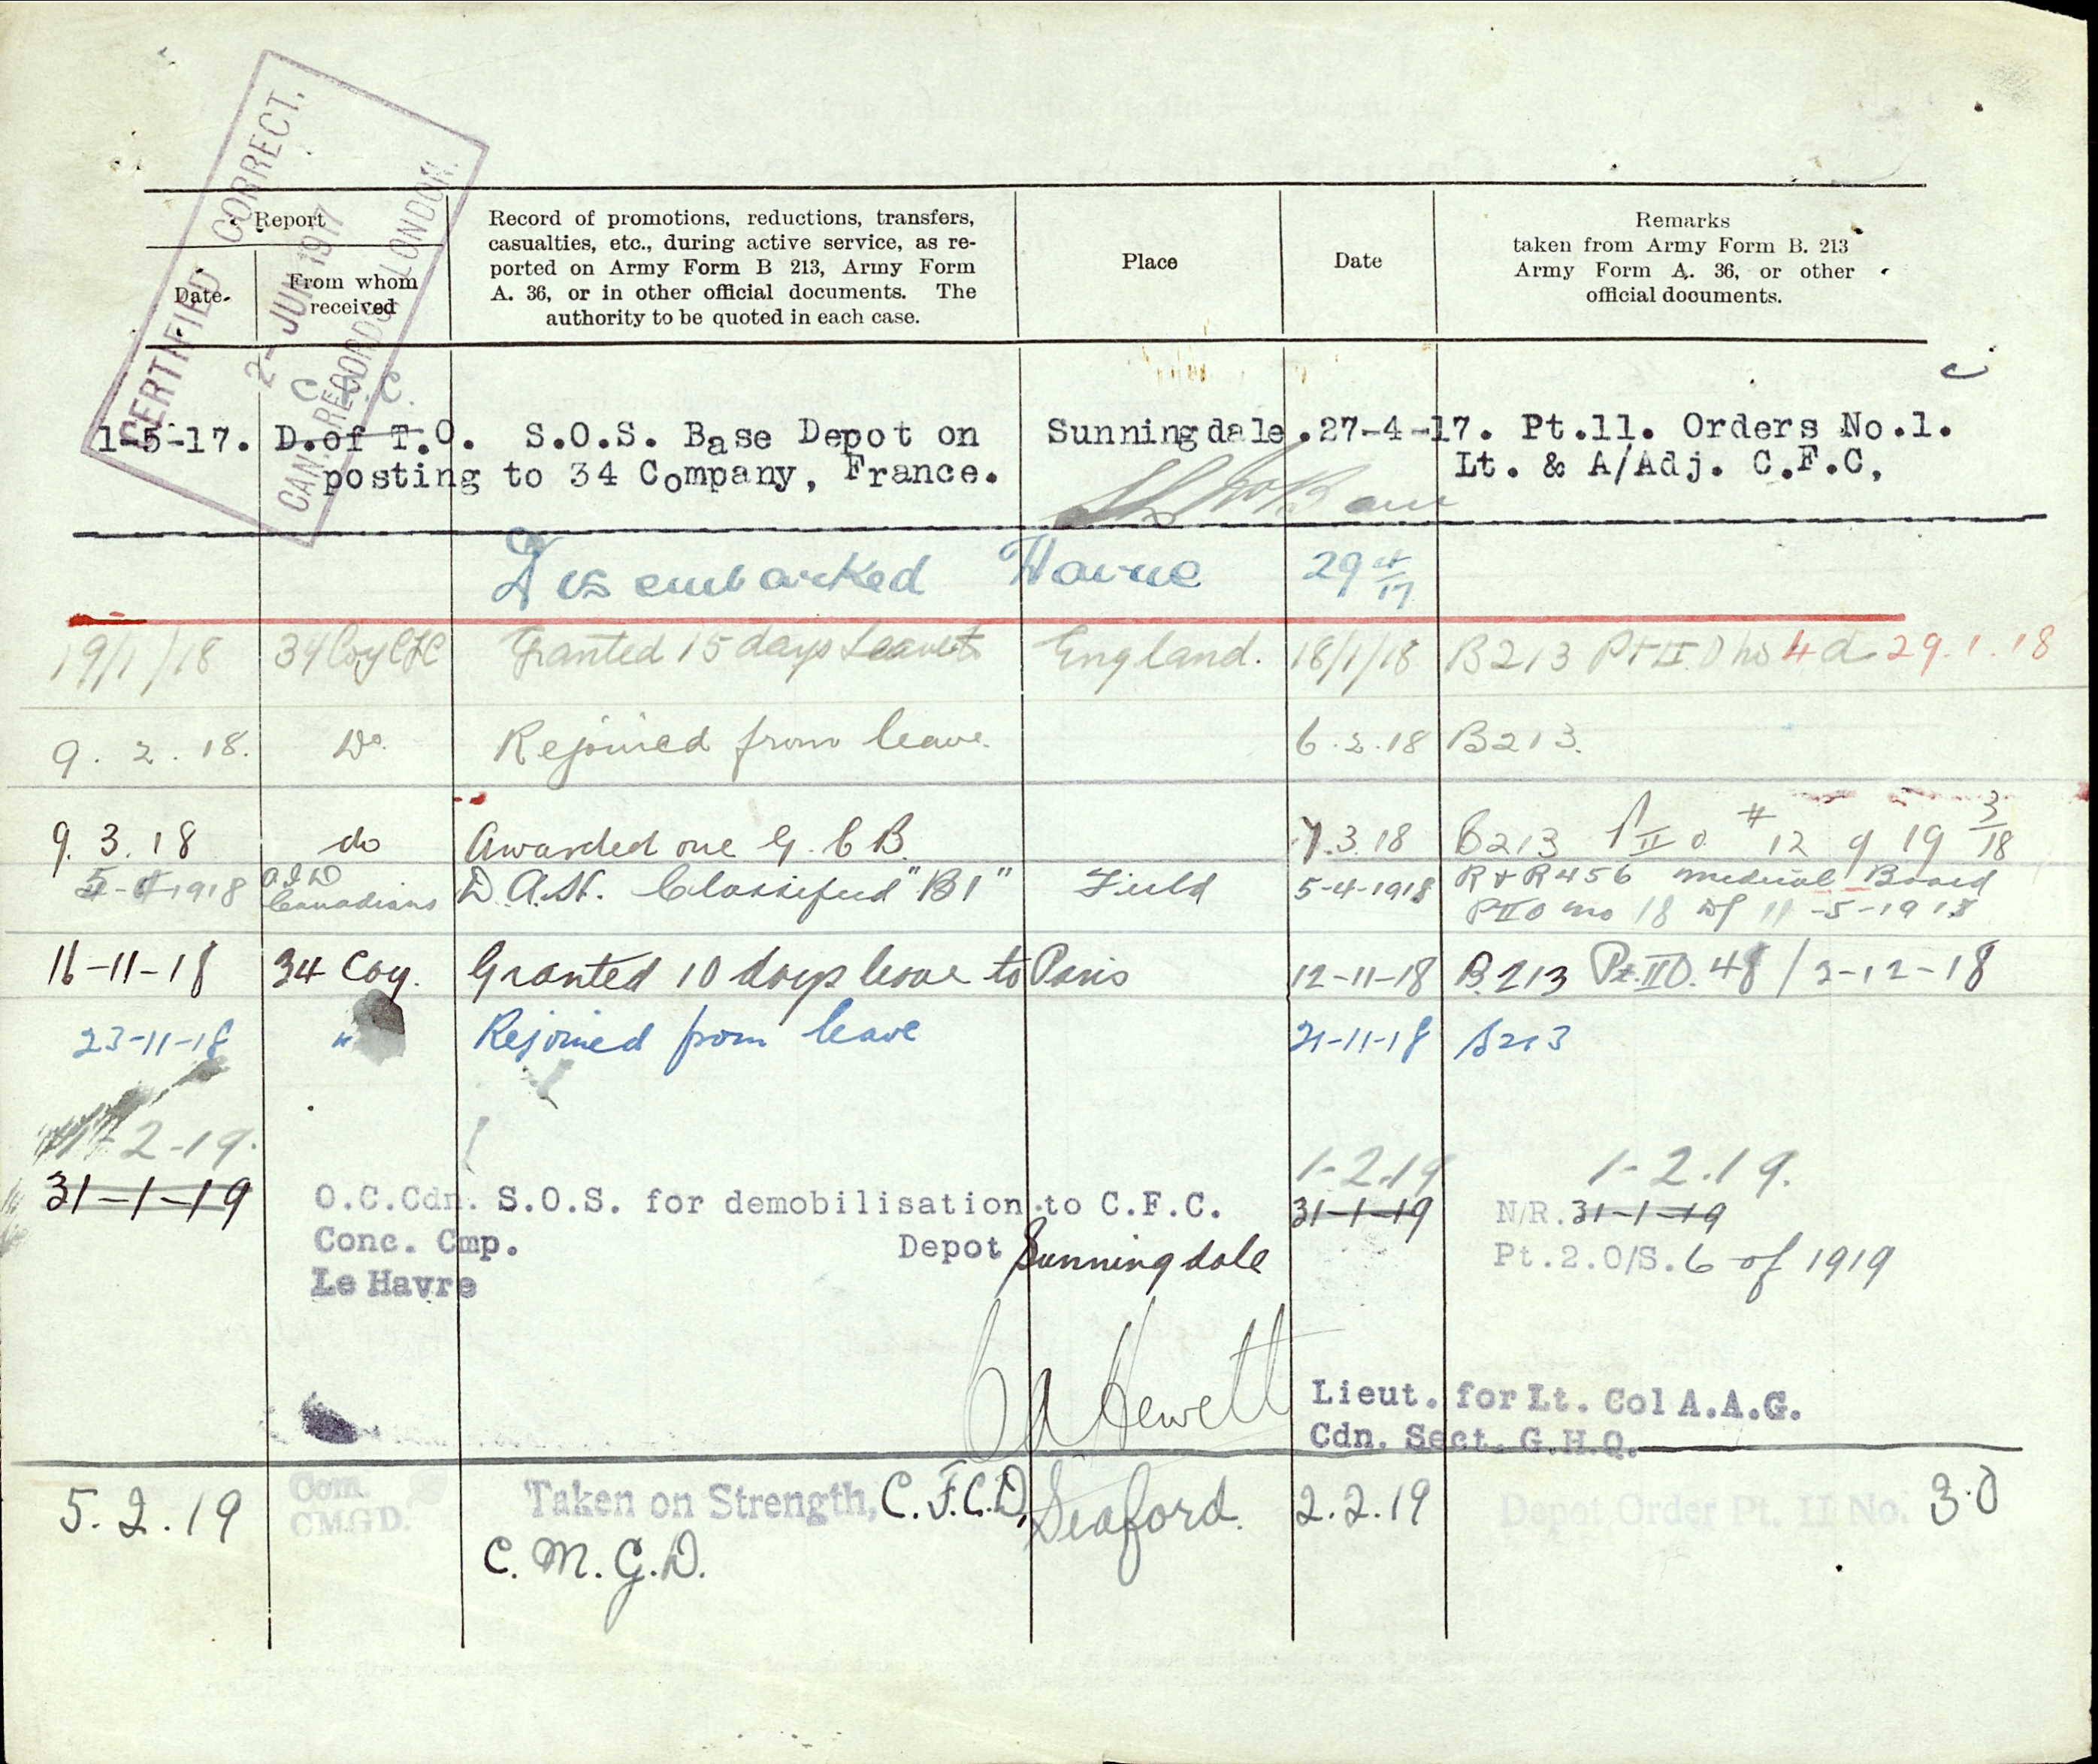 CERTIFIED CORRECT.
2- JUN 1917
CAN. RECORDS LONDON.
Report
Date.
From whom
received
Record of promotions, reductions, transfers,
casualties, etc., during active service, as re-
ported on Army Form B 213, Army Form
A. 36, or in other official documents. The
authority to be quoted in each case.
Place
Date
Remarks
taken from Army Form B. 213
Army Form A. 36, or other
official documents.
1-5-17. D.of T.O. S.O.S. Base Depot on Sunningdale.27-4-17. Pt.11. Orders No.1.
posting to 34 Company, France. Lt. & A/Adj. C.F.C.
Disembarked Havre 29 4/17
19/1/18 34 Coy CFC Granted 15 days Leave England. 18/1/18 B213 Pt II. O no 4 d 29.1.18
9.2.18. Do Rejoined from leave. 6.2.18 B213.
9.3.18 do Awarded one G.C.B. 7.3.18 B213 P II O #12 of 19 3/18
1918 Canadians D.A.H. Classified "B1" Field 5-4-1918 R & R 456 Medical Board
PIIO no 18 of 11-5-1918
16-11-18 34 Coy. Granted 10 days leave to Paris 12-11-18 B.213 Pt.IIO.48/2-12-18
23-11-18 " Rejoined from leave 21-11-18 B213
2-19. 1-2.19 1-2.19.
31-1-19 O.C.Cdn. S.O.S. for demobilisation to C.F.C. 31-1-19 N/R.31-1-19
Conc. Cmp. Depot Sunningdale Pt.2.O/S.6 of 1919
Le Havre
Hewett Lieut. for Lt. Col A.A.G.
Cdn. Sect. G.H.Q.
5.2.19 Com. Taken on Strength, C.F.C.D, Seaford. 2.2.19 Depot Order Pt. II No. 30
CMGD. C.M.G.D.